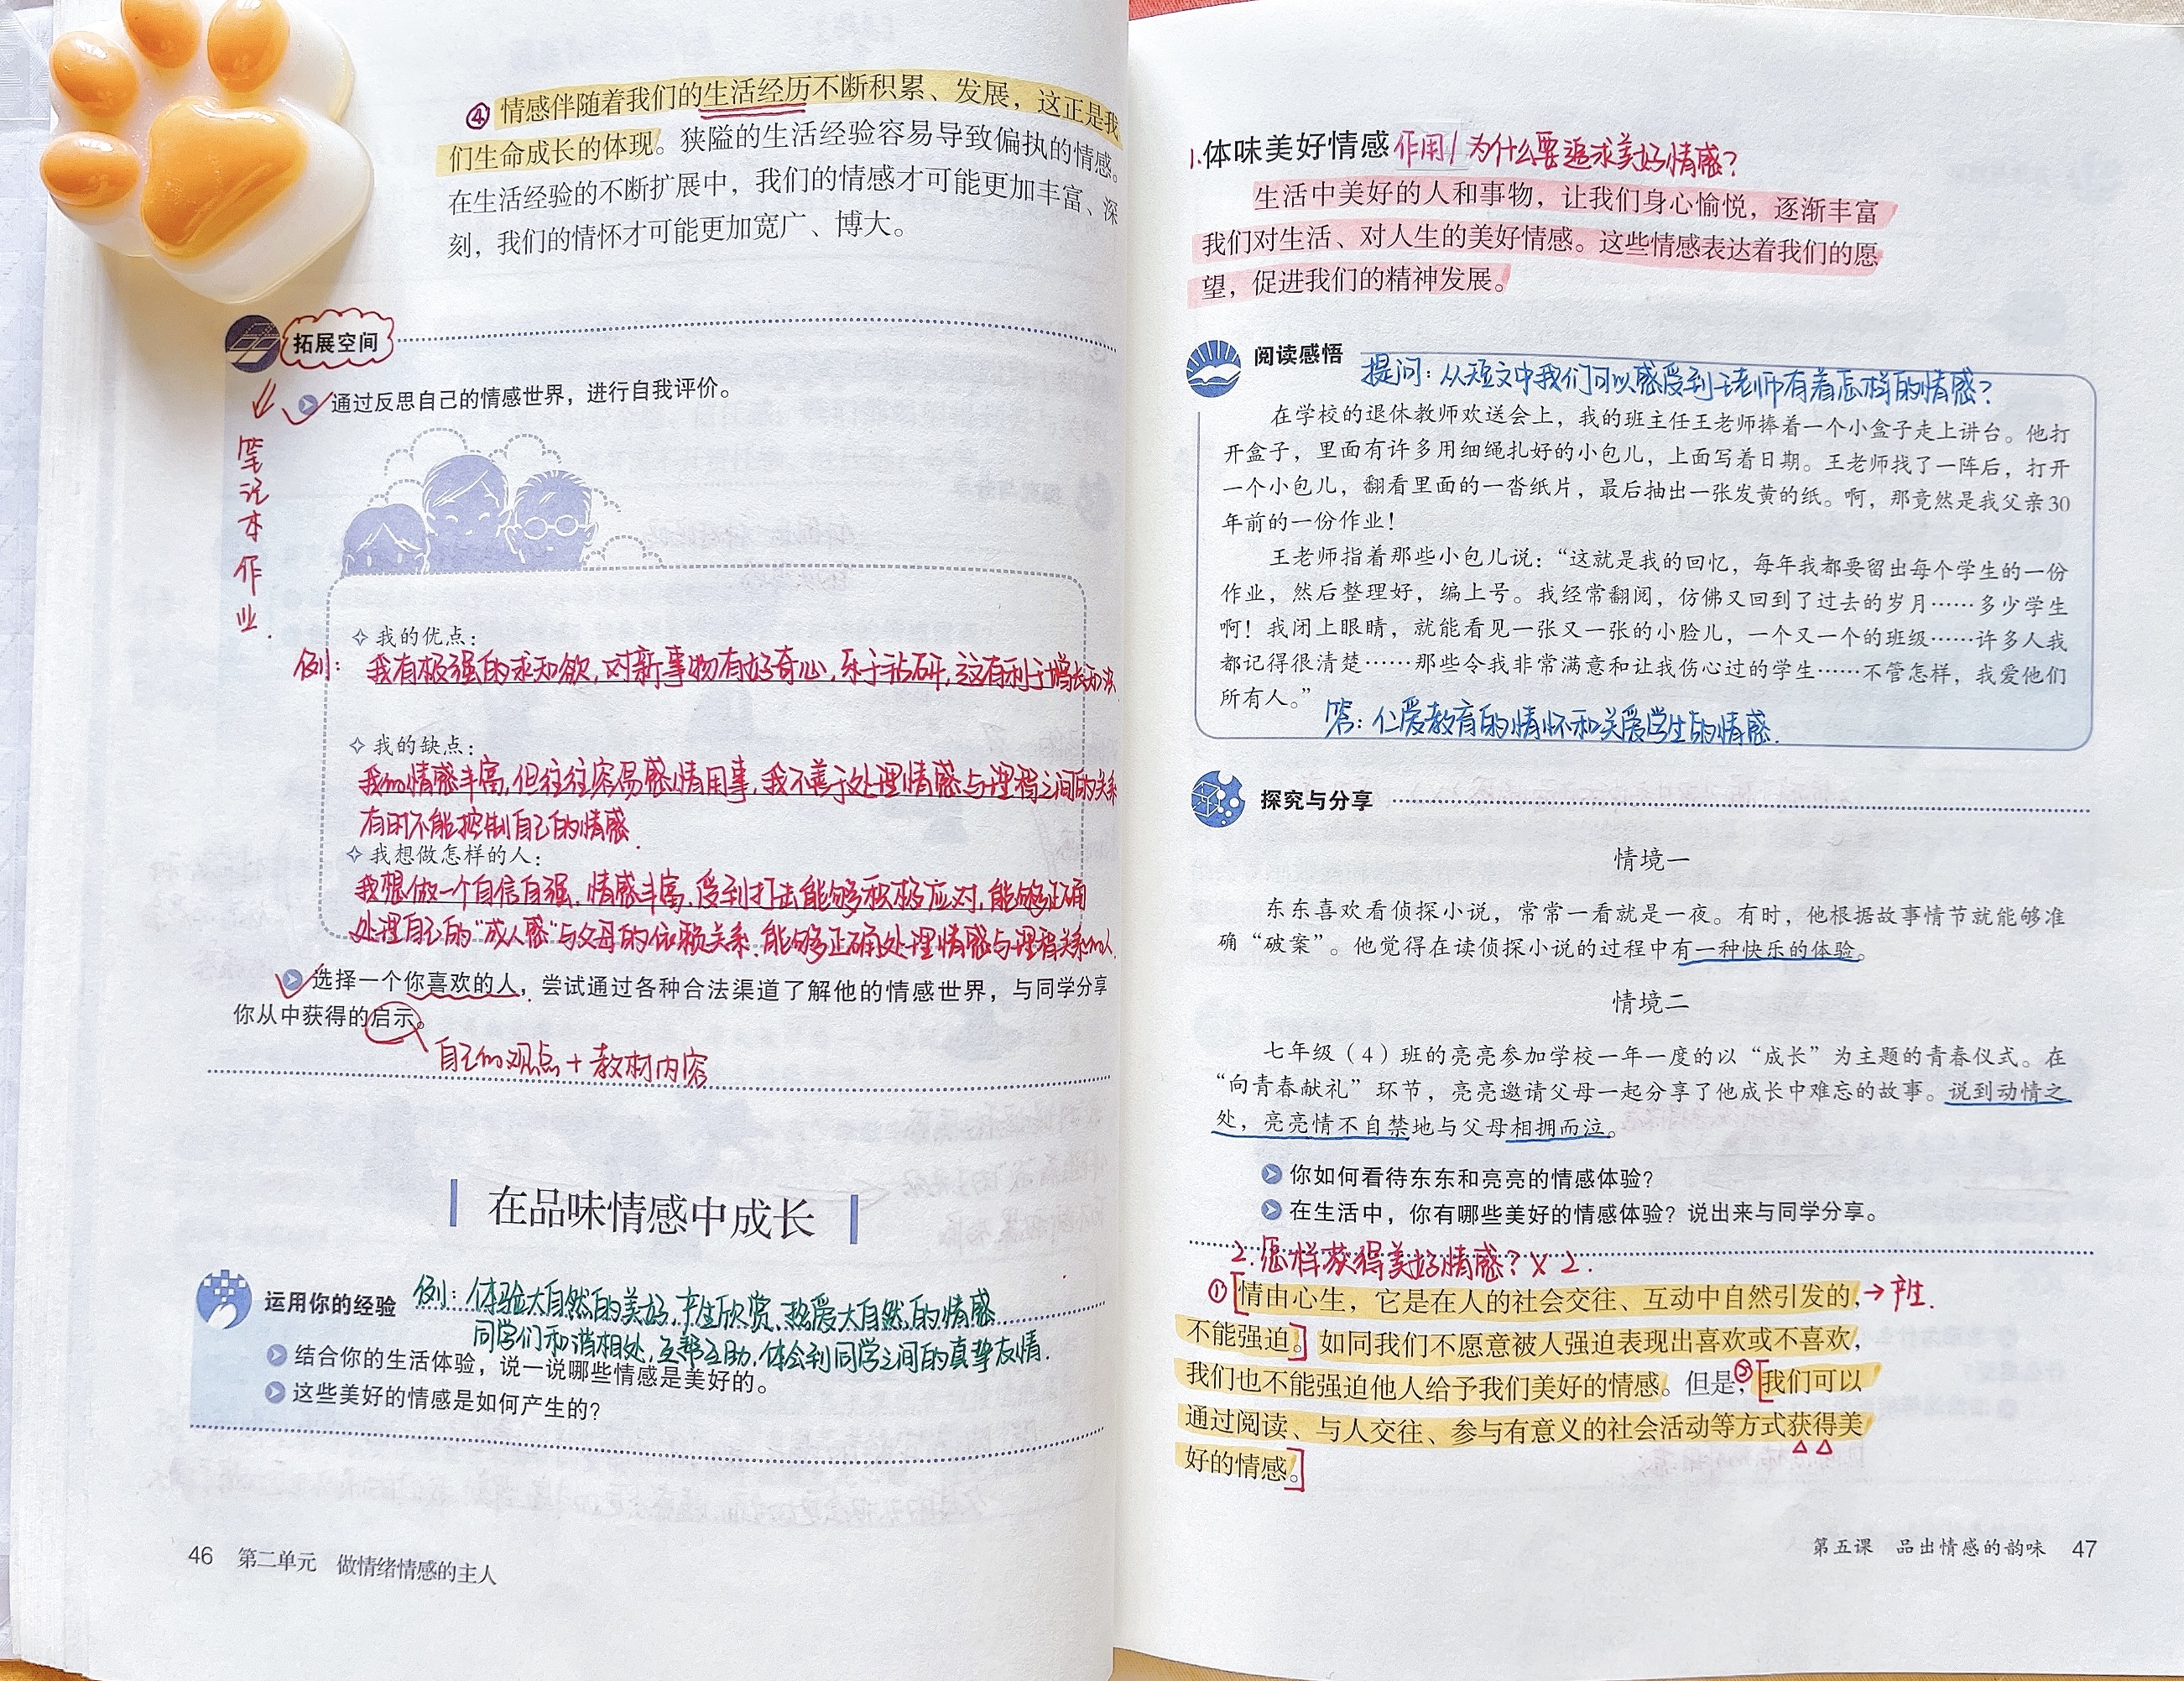 ④ 情感伴随着我们的生活经历不断积累、发展，这正是我
们生命成长的体现。狭隘的生活经验容易导致偏执的情感。
在生活经验的不断扩展中，我们的情感才可能更加丰富、深
刻，我们的情怀才可能更加宽广、博大。
拓展空间
笔记本作业.
通过反思自己的情感世界，进行自我评价。
我的优点：
例：我有极强的求知欲,对新事物有好奇心,乐于钻研,这有利于增长知识
我的缺点：
我的情感丰富,但往往容易感情用事,我不善于处理情感与理智之间的关系
有时不能控制自己的情感.
我想做怎样的人：
我想做一个自信自强,情感丰富,受到打击能够积极应对,能够正确
处理自己的“成人感”与父母的依赖关系,能够正确处理情感与理智关系的人.
选择一个你喜欢的人，尝试通过各种合法渠道了解他的情感世界，与同学分享
你从中获得的启示。
自己的观点+教材内容
在品味情感中成长
运用你的经验
例：体验大自然的美好,产生欣赏、热爱大自然的情感
同学们和谐相处,互帮互助,体会到同学之间的真挚友情.
结合你的生活体验，说一说哪些情感是美好的。
这些美好的情感是如何产生的？
46 第二单元 做情绪情感的主人
1.体味美好情感 作用/为什么要追求美好情感?
生活中美好的人和事物，让我们身心愉悦，逐渐丰富
我们对生活、对人生的美好情感。这些情感表达着我们的愿
望，促进我们的精神发展。
阅读感悟
提问：从短文中我们可以感受到王老师有着怎样的情感?
在学校的退休教师欢送会上，我的班主任王老师捧着一个小盒子走上讲台。他打
开盒子，里面有许多用细绳扎好的小包儿，上面写着日期。王老师找了一阵后，打开
一个小包儿，翻看里面的一沓纸片，最后抽出一张发黄的纸。啊，那竟然是我父亲30
年前的一份作业！
王老师指着那些小包儿说：“这就是我的回忆，每年我都要留出每个学生的一份
作业，然后整理好，编上号。我经常翻阅，仿佛又回到了过去的岁月……多少学生
啊！我闭上眼睛，就能看见一张又一张的小脸儿，一个又一个的班级……许多人我
都记得很清楚……那些令我非常满意和让我伤心过的学生……不管怎样，我爱他们
所有人。”
答：仁爱教育的情怀和关爱学生的情感.
探究与分享
情境一
东东喜欢看侦探小说，常常一看就是一夜。有时，他根据故事情节就能够准
确“破案”。他觉得在读侦探小说的过程中有一种快乐的体验。
情境二
七年级（4）班的亮亮参加学校一年一度的以“成长”为主题的青春仪式。在
“向青春献礼”环节，亮亮邀请父母一起分享了他成长中难忘的故事。说到动情之
处，亮亮情不自禁地与父母相拥而泣。
你如何看待东东和亮亮的情感体验？
在生活中，你有哪些美好的情感体验？说出来与同学分享。
2.怎样获得美好情感? X 2.
① [情由心生，它是在人的社会交往、互动中自然引发的，→产生.
不能强迫。] 如同我们不愿意被人强迫表现出喜欢或不喜欢，
我们也不能强迫他人给予我们美好的情感。但是，② [我们可以
通过阅读、与人交往、参与有意义的社会活动等方式获得美
好的情感。]
第五课 品出情感的韵味 47